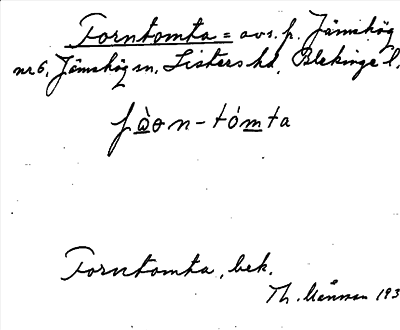 Forntomta = avs. p. Jämshög
nr 6, Jämshög sn, Listers hd, Blekinge l.
fàon-tómta
Forntomta, bek.
Th. Månsson 193